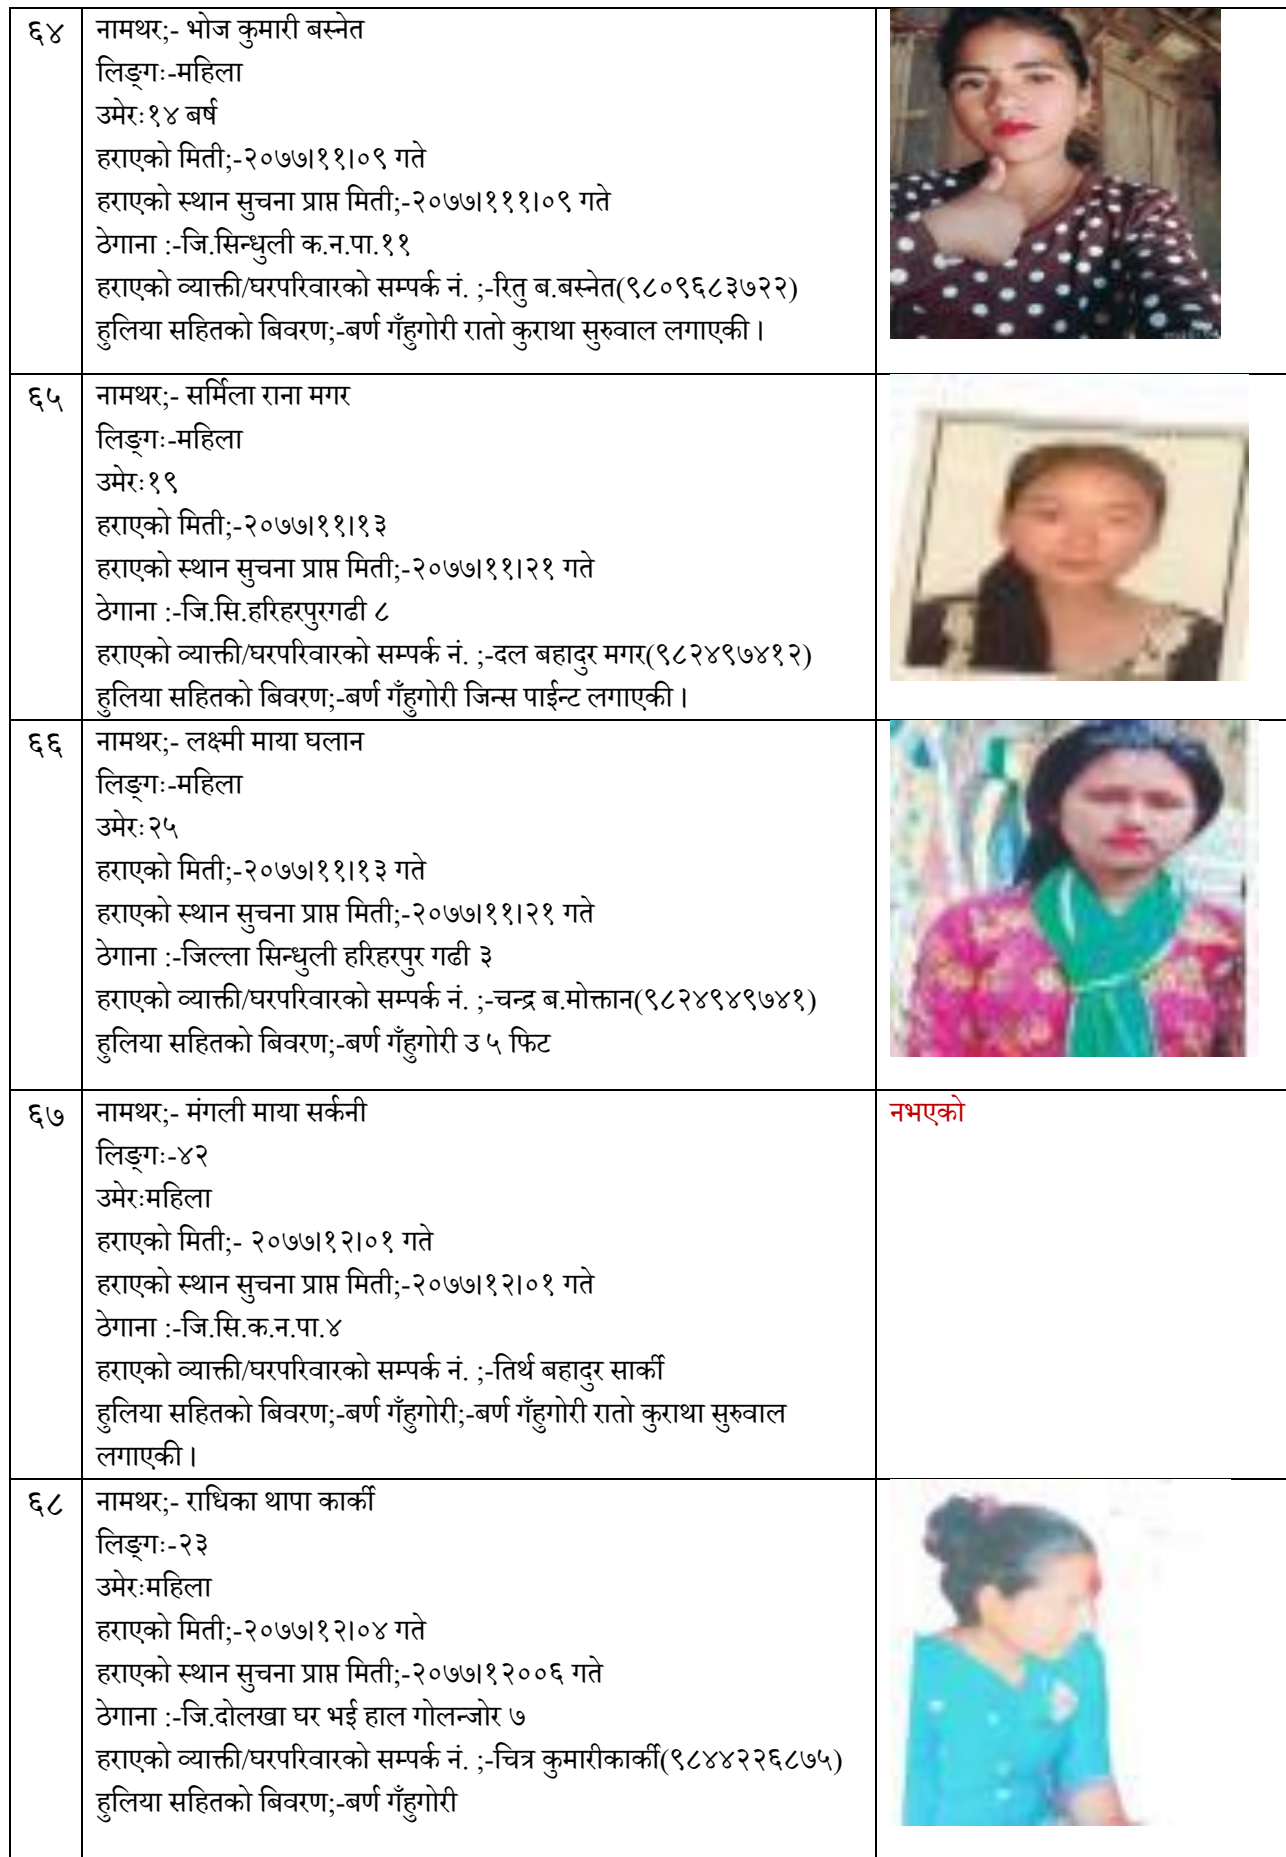 ६४
नामथर;- भोज कुमारी बस्नेत
लिङ्गः-महिला
उमेरः१४ बर्ष
हराएको मिती;-२०७७।११।०९ गते
हराएको स्थान सुचना प्राप्त मिती;-२०७७।१११।०९ गते
ठेगाना :-जि.सिन्धुली क.न.पा.११
हराएको व्याक्ती/घरपरिवारको सम्पर्क नं. ;-रितु ब.बस्नेत(९८०९६८३७२२)
हुलिया सहितको बिवरण;-बर्ण गँहुगोरी रातो कुराथा सुरुवाल लगाएकी ।
६५
नामथर;- सर्मिला राना मगर
लिङ्गः-महिला
उमेरः१९
हराएको मिती;-२०७७।११।१३
हराएको स्थान सुचना प्राप्त मिती;-२०७७।११।२१ गते
ठेगाना :-जि.सि.हरिहरपुरगढी ८
हराएको व्याक्ती/घरपरिवारको सम्पर्क नं. ;-दल बहादुर मगर(९८२४९७४१२)
हुलिया सहितको बिवरण;-बर्ण गँहुगोरी जिन्स पाईन्ट लगाएकी ।
६६
नामथर;- लक्ष्मी माया घलान
लिङ्गः-महिला
उमेरः२५
हराएको मिती;-२०७७।११।१३ गते
हराएको स्थान सुचना प्राप्त मिती;-२०७७।११।२१ गते
ठेगाना :-जिल्ला सिन्धुली हरिहरपुर गढी ३
हराएको व्याक्ती/घरपरिवारको सम्पर्क नं. ;-चन्द्र ब.मोक्तान(९८२४९४९७४१)
हुलिया सहितको बिवरण;-बर्ण गँहुगोरी उ ५ फिट
६७
नामथर;- मंगली माया सर्कनी
नभएको
लिङ्गः-४२
उमेरःमहिला
हराएको मिती;- २०७७।१२।०१ गते
हराएको स्थान सुचना प्राप्त मिती;-२०७७।१२।०१ गते
ठेगाना :-जि.सि.क.न.पा.४
हराएको व्याक्ती/घरपरिवारको सम्पर्क नं. ;-तिर्थ बहादुर सार्की
हुलिया सहितको बिवरण;-बर्ण गँहुगोरी;-बर्ण गँहुगोरी रातो कुराथा सुरुवाल
लगाएकी ।
६८
नामथर;- राधिका थापा कार्की
लिङ्गः-२३
उमेरःमहिला
हराएको मिती;-२०७७।१२।०४ गते
हराएको स्थान सुचना प्राप्त मिती;-२०७७।१२००६ गते
ठेगाना :-जि.दोलखा घर भई हाल गोलन्जोर ७
हराएको व्याक्ती/घरपरिवारको सम्पर्क नं. ;-चित्र कुमारीकार्की(९८४४२२६८७५)
हुलिया सहितको बिवरण;-बर्ण गँहुगोरी